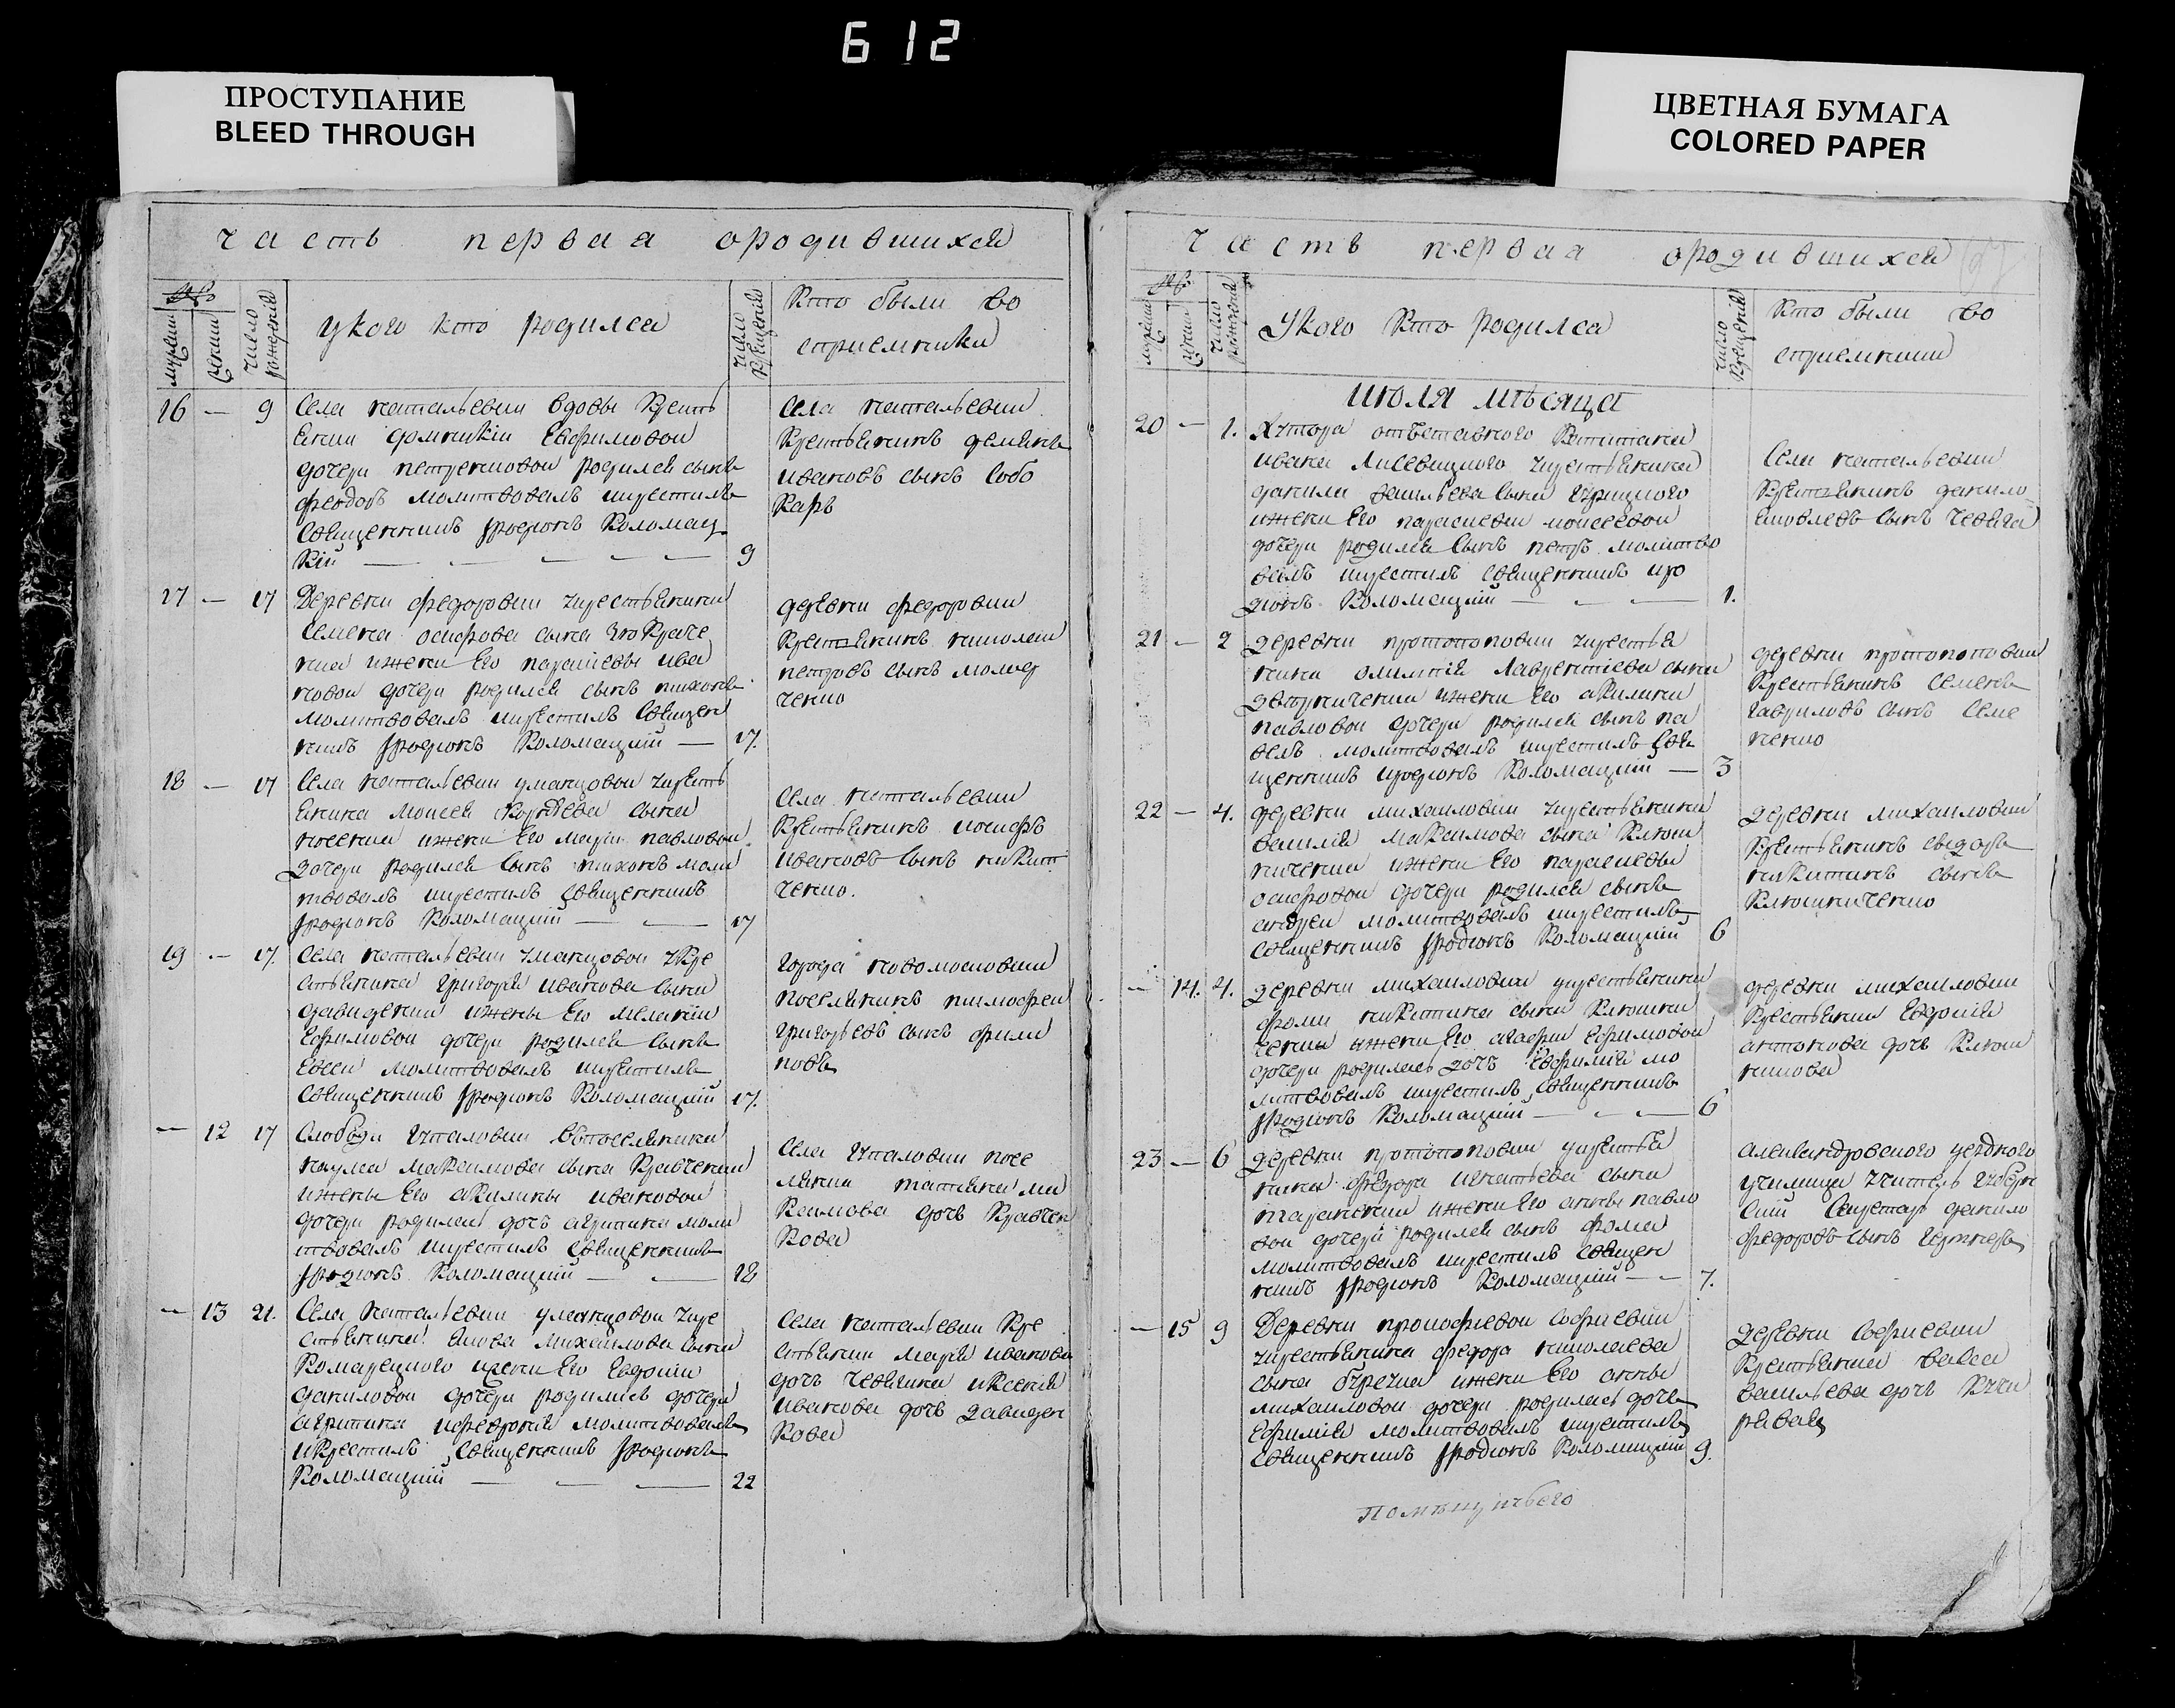 612
ПРОСТУПАНИЕ
BLEED THROUGH
ЦВЕТНАЯ БУМАГА
COLORED PAPER
часть первая ородившихся
мужеск женски число рожденій
укого кто родился
число крещеній
Кто были во
спріемники
16 — 9 Села натальевки вдовы Кресть
янки домникіи Евфимовой
дочери родился сынъ
феодоръ молитвовалъ икрестилъ
Священникъ Іродіонъ Коломац
кій — — — — 9
Села натальевки
Крестьянинъ демянъ
ивановъ сынъ Собо
каръ
17 — 17 Деревни федоровки укрестьянина
Семена осифова сына
ижени Его параскевы ива
новой дочери родился сынъ тихонъ
молитвовалъ икрестилъ Священ
никъ Іродіонъ Коломацкій — 17.
деревни федоровки
Крестьянинъ николай
петровъ сынъ молод
ченко
18 — 17 Села натальевки уманцовой укресть
янина моисея сына
ижени Его маріи павловой
дочери родился сынъ тихонъ моли
твовалъ икрестилъ Священникъ
Іродіонъ Коломацкій — — 17
Села натальевки
Крестьянинъ иосифъ
ивановъ сынъ никит
ченко.
19 — 17. Села натальевки уманцовой укре
стьянина григорія иванова сына
давиденки ижены Его меланіи
Ефимовой дочери родился сынъ
Евсей молитвовалъ икрестилъ
Священникъ Іродіонъ Коломацкій 17.
города новомосковска
поселянинъ тимофей
григорьевъ сынъ фили
повъ
— 12 17 Слободы упоселянина
наума максимова сына Кравченки
ижены Его акилины ивановой
дочери родилась дочь агрипина моли
твовалъ икрестилъ Священникъ
Іродіонъ Коломацкій — — 18
Села посе
лянка татьяна ма
ксимова дочь Кравчен
кова
— 13 21. Села натальевки уманцовой укре
стьянина якова михайлова сына
Комарецкого ижени Его Евдокіи
даниловой дочери родились дочери
агрипина ифевронія молитвовалъ
икрестилъ Священникъ Іродіонъ
Коломацкій — — — 22
Села натальевки Кре
стьянки марія иванова
дочь иксенія
иванова дочь давиден
кова
часть первая ородившихся
мужеск женска число рожденій
Укого Кто родился
число крещеній
Кто были во
спріемники
июля мѣсяца
20 — 1. Хутора отставного Капитана
ивана Лисевицкого укрестьянина
данила васильева сына
ижени Его параскевы моисеевой
дочери родился сынъ петръ молитво
валъ икрестилъ Священникъ иро
діонъ Коломацкій — — — 1.
Села натальевки
Крестьянинъ данило
яковлевъ сынъ
21 — 2 деревни протопоповки укрестья
нина Лаврентіева сына
ижени Его акилины
павловой дочери родился сынъ па
велъ молитвовалъ икрестилъ Свя
щенникъ иродіонъ Коломацкій — 3
деревни протопоповки
Крестьянинъ Семенъ
гавриловъ сынъ Семе
ненко
22 — 4. деревни михайловки укрестьянина
василія максимова сына Клюш
ниченки ижени Его параскевы
осифовой дочери родился сынъ
андрей молитвовалъ икрестилъ
Священникъ Іродіонъ Коломацкій 6
деревни михайловки
Крестьянинъ сидоръ
никитинъ сынъ
Клюшниченко
— 14. 4. деревни михайловки укрестьянина
фомы никитина сына Клюшни
ченки ижени Его агафіи Ефимовой
дочери родилась дочь Евфимія мо
литвовалъ икрестилъ Священникъ
Іродіонъ Коломацкій — — — 6
деревни михайловки
Крестьянки Евдокія
антонова дочь Клюш
никова
23 — 6 деревни протопоповки укрестья
нина федора игнатьева сына
Тараненки ижени Его анны павло
вой дочери родился сынъ фома
молитвовалъ икрестилъ Священ
никъ Іродіонъ Коломацкій — — 7.
александровского уездного
училища учитель губерн
скій Секретар данило
федоровъ сынъ
— 15 9 Деревни прокофіевой Софіевки
укрестьянина федора николаева
сына ижени Его анны
михайловой дочери родилась дочь
Ефимія молитвовалъ икрестилъ
Священникъ Іродіонъ Коломацкій 9.
деревни Софіевки
Крестьянка васса
васильева дочь